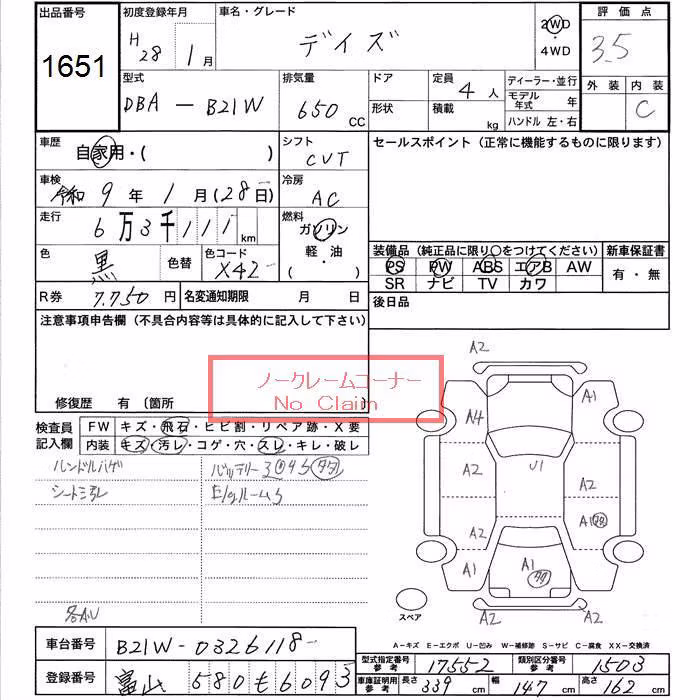 出品番号
1651
初度登録年月
H28 1月
車名・グレード
デイズ
2WD
・
4WD
評価点
3.5
外装 内装
C
型式
DBA-B21W
排気量
650 CC
ドア
形状
定員
4人
積載
kg
ディーラー・並行
モデル年式 年
ハンドル 左・右
車歴
自家用・( )
シフト
CVT
セールスポイント(正常に機能するものに限ります)
車検
令和9年1月(28日)
冷房
AC
走行
6万3千111km
燃料
ガソリン
軽・油
・( )
色
黒
色替
色コード
X42
装備品(純正品に限り○をつけてください)
PS PW ABS エアB AW
SR ナビ TV カワ
新車保証書
有・無
R券 7,750円
名変通知期限 月 日
後日品
注意事項申告欄(不具合内容等は具体的に記入して下さい)
ノークレームコーナー
No Claim
修復歴 有〔箇所 〕
検査員
記入欄
FW キズ・飛石・ヒビ割・リペア跡・X要
内装 キズ・汚レ・コゲ・穴・スレ・キレ・破レ
ハンドルハゲ
シート汚レ
E/gルームS
A2
A1
A4
U1
A2
A2
A2
A1
A2
A1
A1
A2
A2
スペア
A-キズ E-エクボ U-凹み W-補修跡 S-サビ C-腐食 XX-交換済
車台番号
B21W-0326118
登録番号
富山 580 も 6093
型式指定番号
参考
17552
類別区分番号
参考
1503
車庫証明用
参考
長さ 339cm
幅 147cm
高さ 162cm